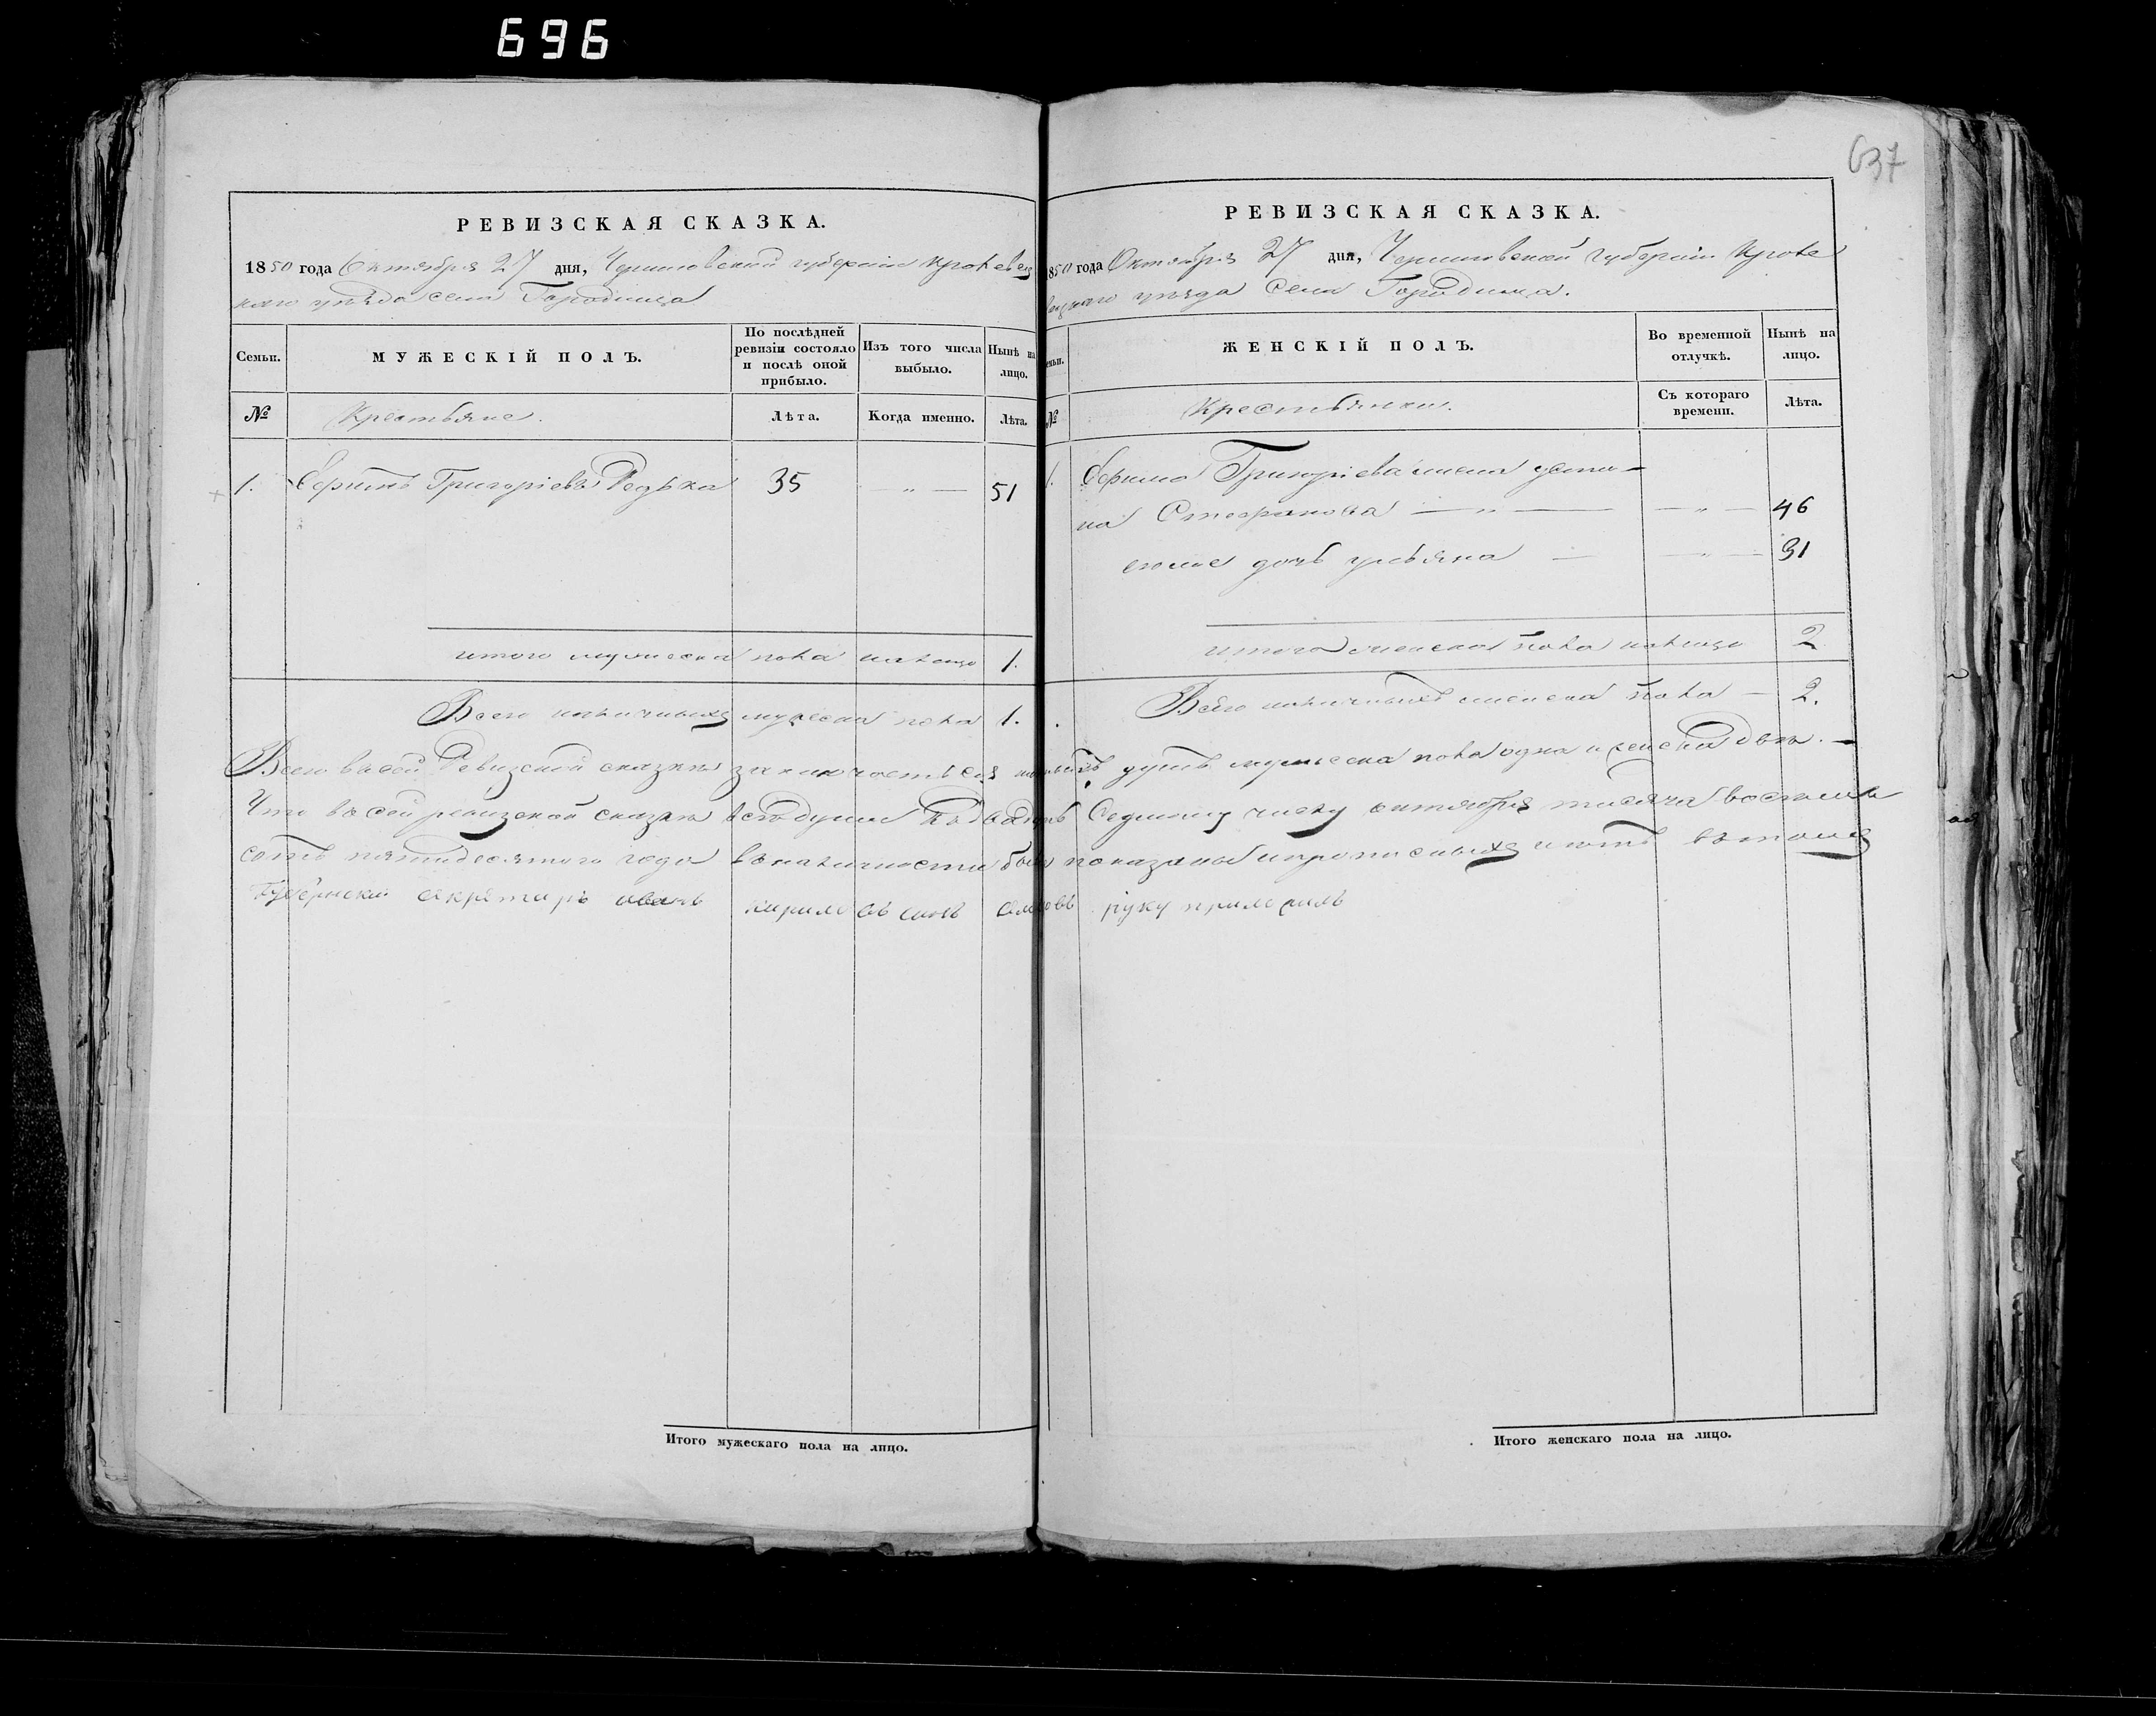 696
637
РЕВИЗСКАЯ СКАЗКА.
1850 года Октября 27 дня, Черниговской губернии Кролевец
каго уезда села Городища
Семьи. МУЖЕСКІЙ ПОЛЪ. По послѣдней ревизіи состояло и послѣ оной прибыло. Изъ того числа выбыло. Нынѣ на лицо.
№ Крестьяне. Лѣта. Когда именно. Лѣта.
1. Григоріевъ Редька 35 — „ — 51
итого мужеска пола налицо 1.
Всего наличныхъ мужеска пола 1.
РЕВИЗСКАЯ СКАЗКА.
1850 года Октября 27 дня, Черниговской губерніи Кроле
вецкаго уезда Села Городища.
Семьи. ЖЕНСКІЙ ПОЛЪ. Во временной отлучкѣ. Нынѣ на лицо.
№ Крестьянки. Съ котораго времени. Лѣта.
1. Григоріева жена усти-
на Стефанова — „ — — „ — 46
дочь ульяна — — „ — 31
итого женска пола налицо 2
Всего наличныхъ женска пола — 2.
Всего въ сей Ревизской сказки душъ мужеска пола одна и женска две. —
Что въ сей ревизской сказки все души Седмому числу октября тисяча восемь
сотъ пятидесятого года въ наличности показаны и прописныхъ нетъ въ томъ
Губернский секретарь иванъ кириловъ синъ руку приложилъ
Итого мужескаго пола на лицо.
Итого женскаго пола на лицо.